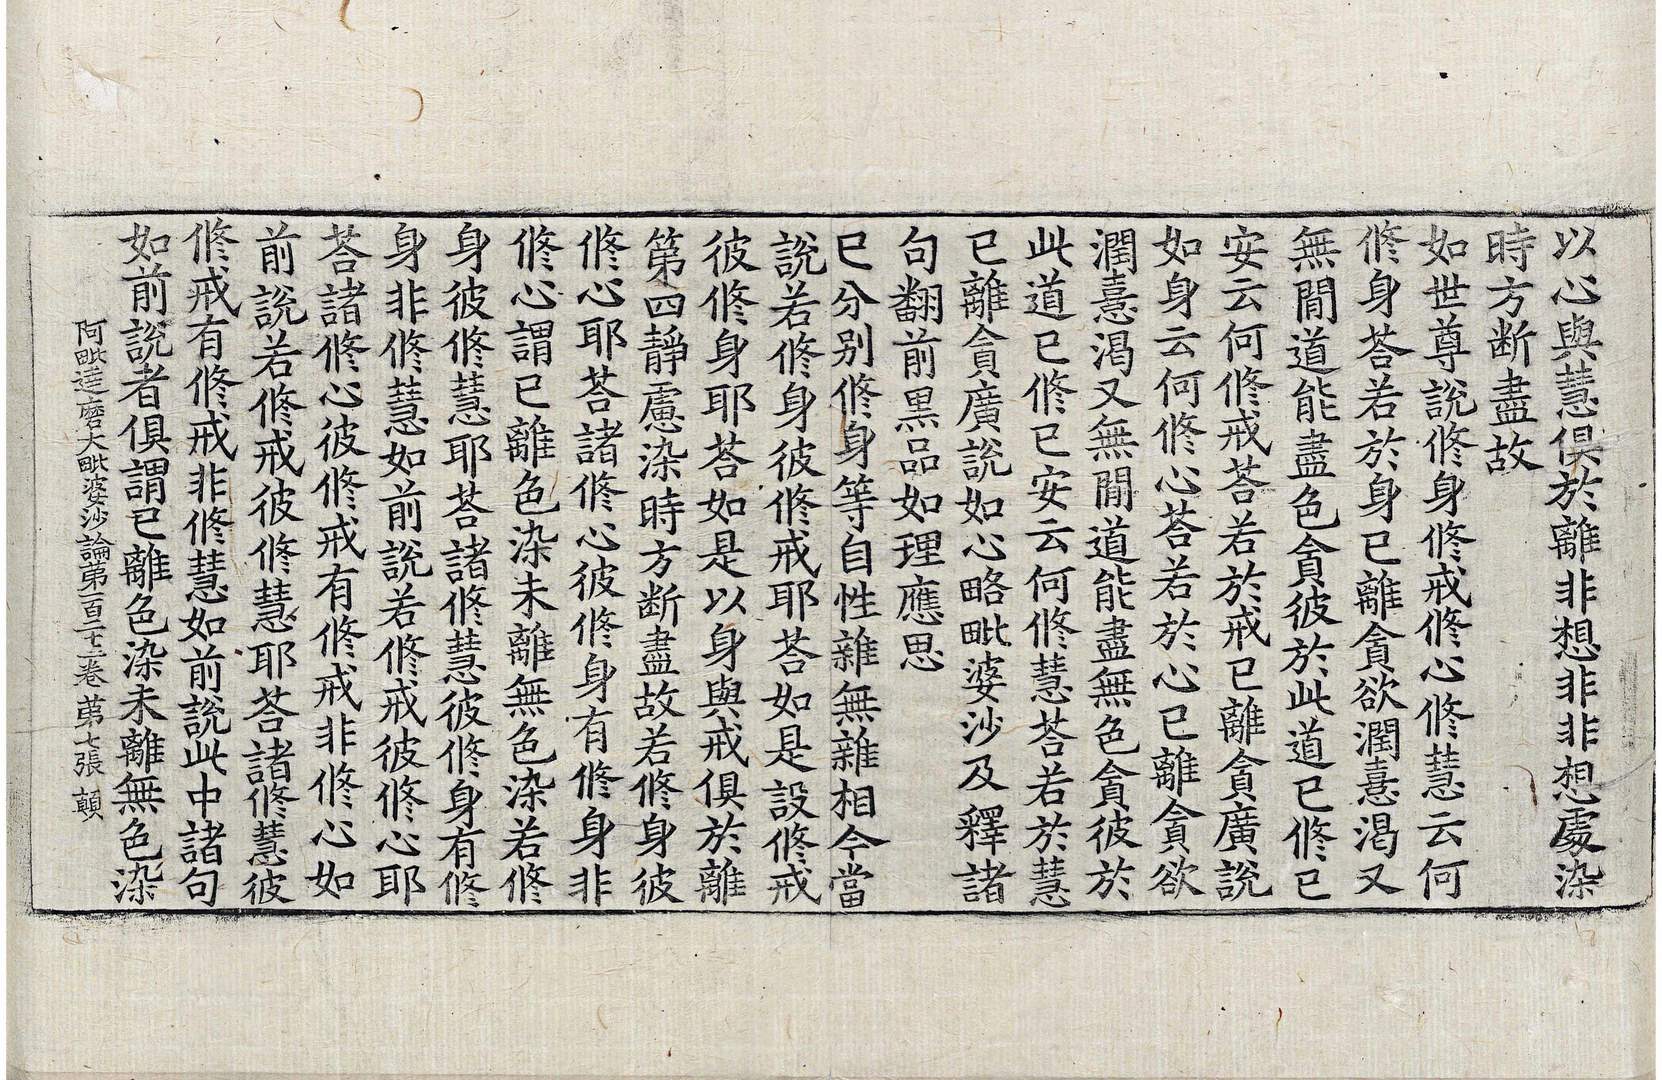 以心與慧俱於離非想非非想處染
時方斷盡故
如世尊說修身修戒修心修慧云何
修身荅若於身已離貪欲潤憙渴又
無閒道能盡色貪彼於此道已修已
安云何修戒荅若於戒已離貪廣說
如身云何修心荅若於心已離貪欲
潤憙渴又無閒道能盡無色貪彼於
此道已修已安云何修慧荅若於慧
已離貪廣說如心略毗婆沙及釋諸
句翻前黑品如理應思
已分別修身等自性雜無雜相今當
說若修身彼修戒耶荅如是設修戒
彼修身耶荅如是以身與戒俱於離
第四靜慮染時方斷盡故若修身彼
修心耶荅諸修心彼修身有修身非
修心謂已離色染未離無色染若修
身彼修慧耶荅諸修慧彼修身有修
身非修慧如前說若修戒彼修心耶
荅諸修心彼修戒有修戒非修心如
前說若修戒彼修慧耶荅諸修慧彼
修戒有修戒非修慧如前說此中諸句
如前說者俱謂已離色染未離無色染
阿毗達磨大毗婆沙論第一百二十三卷 第七張 顛